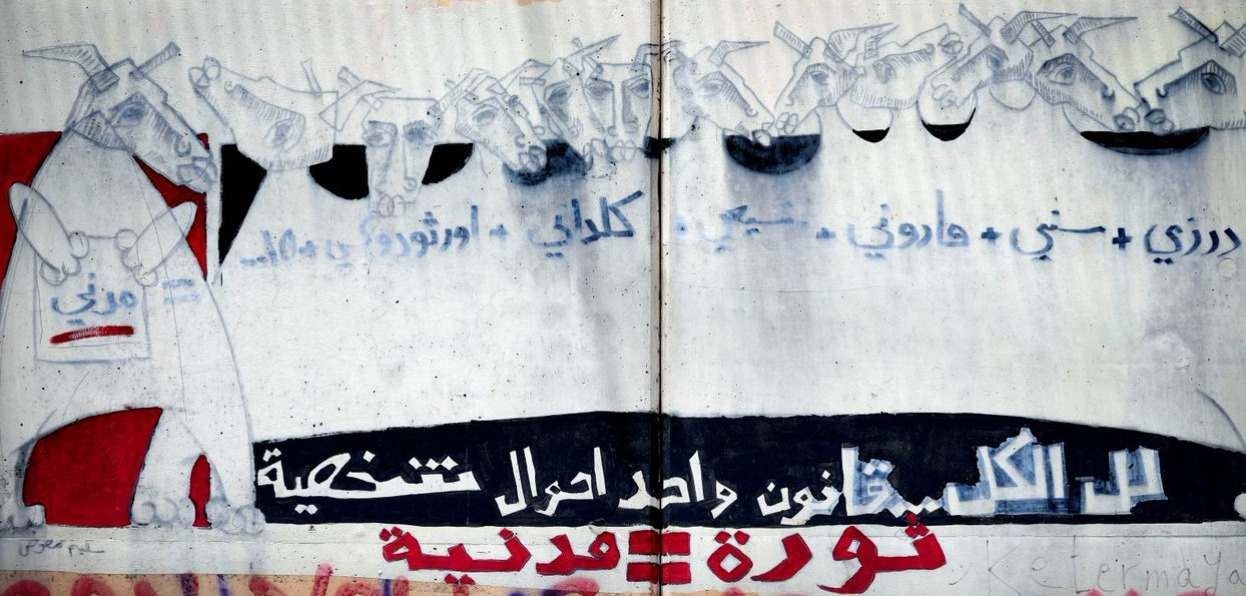 درزي + سني + ماروني + شيعي + كلداني + اورثوذوكسي + ...
= مدني
لل الكل.. قانون واحد احوال شخصية
ثورة = مدنية
سليم معوض
Ketermaya